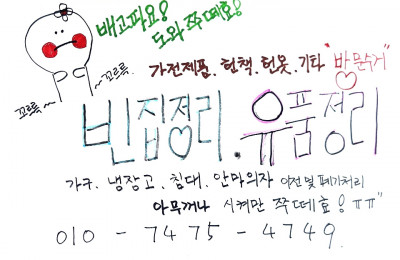 배고파요!
도와쭈떼효!
꼬르륵
꼬르륵
가전제품. 헌책. 헌옷. 기타 "방문수거"
빈집정리. 유품정리
가구. 냉장고. 침대. 안마의자 이전 및 폐기처리
아무꺼나 시켜만 쭈떼효! ㅠㅠ"
010 - 7475 - 4749.